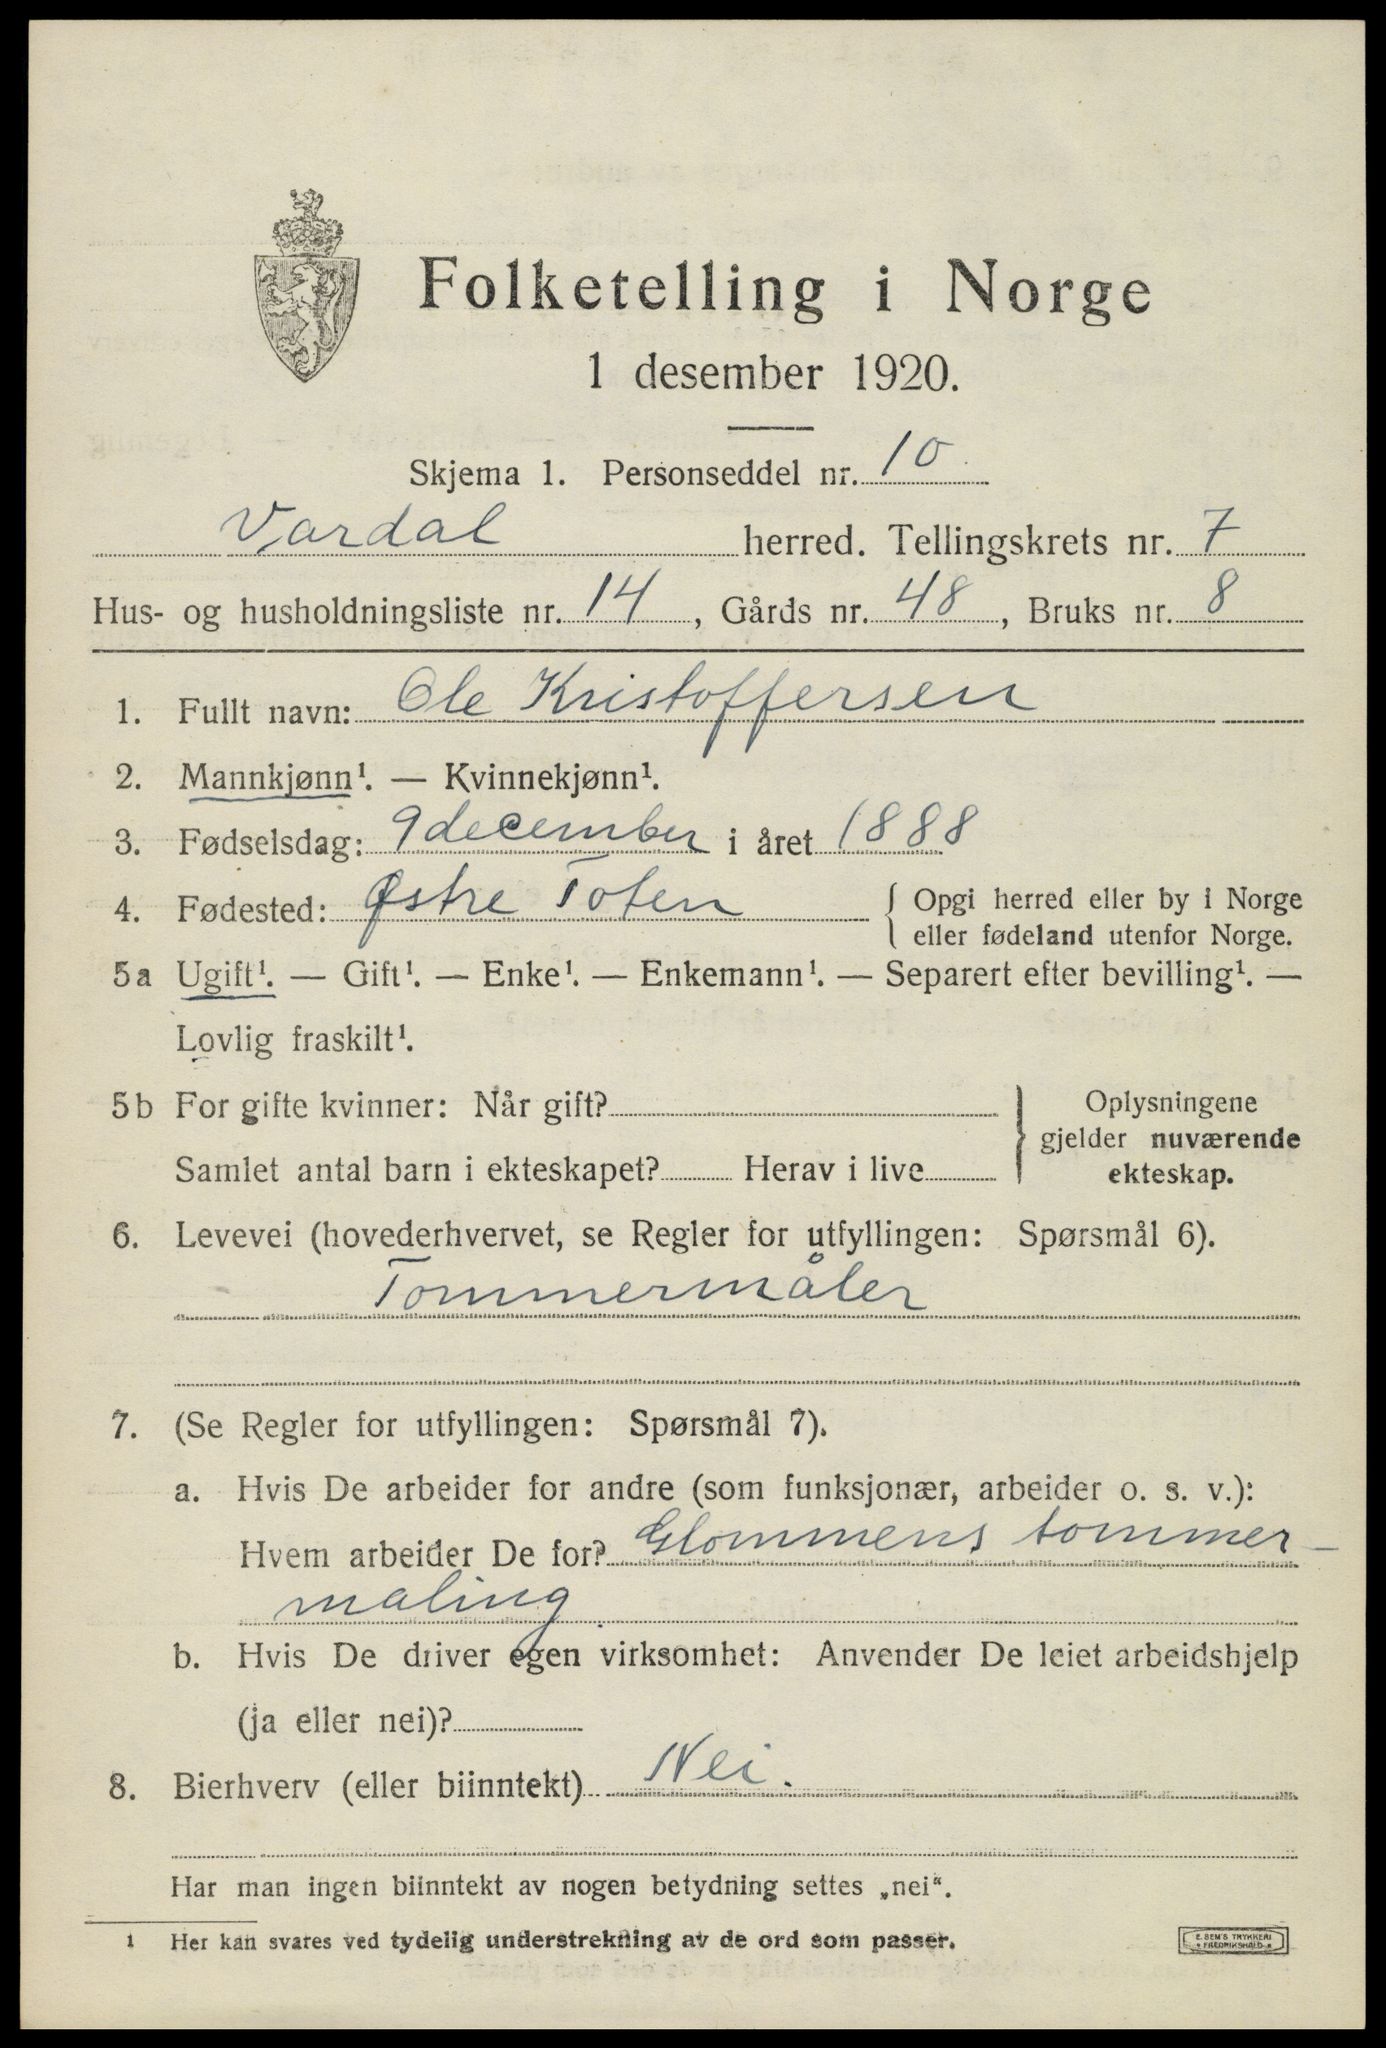 Folketelling i Norge
1 desember 1920.
Skjema 1. Personseddel nr. 10
Vardal herred. Tellingskrets nr. 7
Hus- og husholdningsliste nr. 14, Gårds nr. 48, Bruks nr. 8
1. Fullt navn: Ole Kristoffersen
2. Mannkjønn¹. — Kvinnekjønn¹.
3. Fødselsdag: 9 december i året 1888
4. Fødested: Østre Toten { Opgi herred eller by i Norge
eller fødeland utenfor Norge.
5a Ugift¹. — Gift¹. — Enke¹. — Enkemann¹. — Separert efter bevilling¹. —
Lovlig fraskilt¹.
5b For gifte kvinner: Når gift?
Samlet antal barn i ekteskapet? Herav i live
} Oplysningene
gjelder nuværende
ekteskap.
6. Levevei (hovederhvervet, se Regler for utfyllingen: Spørsmål 6).
Tommermåler
7. (Se Regler for utfyllingen: Spørsmål 7).
a. Hvis De arbeider for andre (som funksjonær, arbeider o. s. v.):
Hvem arbeider De for? Glommens tommer-
maling
b. Hvis De driver egen virksomhet: Anvender De leiet arbeidshjelp
(ja eller nei)?
8. Bierhverv (eller biinntekt) Nei.
Har man ingen biinntekt av nogen betydning settes „nei“.
¹ Her kan svares ved tydelig understrekning av de ord som passer.
E. SEM'S TRYKKERI
FREDRIKSHALD